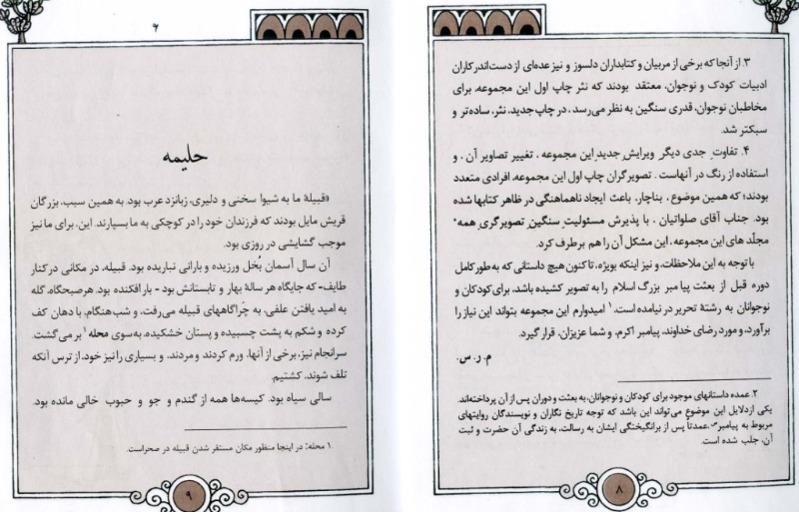 ۳. از آنجا که برخی از مربیان و کتابداران دلسوز و نیز عده‌ای از دست‌اندرکاران
ادبیات کودک و نوجوان، معتقد بودند که نثر چاپ اول این مجموعه، برای
مخاطبان نوجوان، قدری سنگین به نظر می‌رسد، در چاپ جدید، نثر، ساده‌تر و
سبکتر شد.
۴. تفاوتِ جدی دیگر ویرایش جدید این مجموعه، تغییر تصاویر آن، و
استفاده از رنگ در آنهاست. تصویرگران چاپ اول این مجموعه، افرادی متعدد
بودند؛ که همین موضوع، بناچار، باعث ایجاد ناهماهنگی در ظاهر کتابها شده
بود. جناب آقای صلواتیان، با پذیرش مسئولیتِ سنگینِ تصویرگریِ همهٔ
مجلّدهای این مجموعه، این مشکل آن را هم برطرف کرد.
با توجه به این ملاحظات، و نیز اینکه بویژه، تاکنون هیچ داستانی که به طور کامل
دوره قبل از بعثت پیامبر بزرگ اسلام را به تصویر کشیده باشد، برای کودکان و
نوجوانان به رشتهٔ تحریر در نیامده است.¹ امیدوارم این مجموعه بتواند این نیاز را
برآورد، و مورد رضای خداوند، پیامبر اکرم، و شما عزیزان، قرار گیرد.
م. ر. س.
۲. عمده داستانهای موجود برای کودکان و نوجوانان، به بعثت و دوران پس از آن پرداخته‌اند.
یکی از دلایل این موضوع می‌تواند این باشد که توجه تاریخ نگاران و نویسندگان روایتهای
مربوط به پیامبر(ص)، عمدتاً پس از برانگیختگی ایشان به رسالت، به زندگی آن حضرت و ثبت
آن، جلب شده است.
۸
۶
حلیمه
«قبیلهٔ ما به شیوا سخنی و دلیری، زبانزد عرب بود. به همین سبب، بزرگان
قریش مایل بودند که فرزندان خود را در کوچکی به ما بسپارند. این، برای ما نیز
موجب گشایشی در روزی بود.
آن سال آسمان بُخل ورزیده و بارانی نباریده بود. قبیله، در مکانی در کنار
طایف- که جایگاه هر سالهٔ بهار و تابستانش بود - بار افکنده بود. هر صبحگاه، گله
به امید یافتن علفی، به چراگاههای قبیله می‌رفت، و شب هنگام، با دهان کف
کرده و شکم به پشت چسبیده و پستان خشکیده، به سوی محله¹ بر می‌گشت.
سرانجام نیز، برخی از آنها، ورم کردند و مردند، و بسیاری را نیز خود، از ترس آنکه
تلف شوند، کشتیم.
سالی سیاه بود. کیسه‌ها همه از گندم و جو و حبوب خالی مانده بود.
۱. محله: در اینجا منظور مکان مستقر شدن قبیله در صحراست.
۹